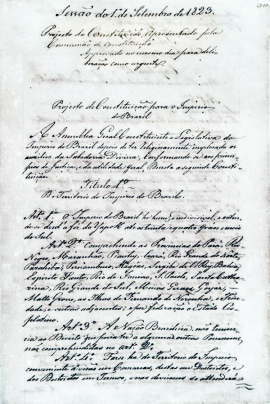 Sessão do 1º de Setembro de 1823.
Projecto de Constituição, apresentado pela
Commissão de Constituição
Approvado no mesmo dia para deli-
beração como urgente.
Projecto de Constituição para o Imperio
do Brazil
A Assemblea Geral Constituinte e Legislativa do
Imperio do Brazil depois de ter religiosamente implorado os
auxilios da Sabedoria Divina, conformando-se aos princi-
pios de Justiça, e da utilidade geral Decreta a seguinte Consti-
tuição.
Titulo 1º
Do Territorio do Imperio do Brazil.
Art. 1º O Imperio do Brazil he hum, e indivisivel, e esten-
de-se desde a foz do Oyapok até os trinta e quatro graos e meio
do Sul.
Art. 2º Comprehende as Provincias do Pará, Rio
Negro, Maranhão, Piauhy, Ceará, Rio Grande do Norte,
Parahiba, Pernambuco, Alagoas, Sergipe d'El Rey, Bahia,
Espirito Santo, Rio de Janeiro, S. Paulo, Santa Catha-
rina, Rio Grande do Sul, Minas Geraes, Goyaz,
Matto Grosso, as Ilhas de Fernando de Noronha, e Trin-
dade, e outras adjacentes; e por federação o Estado Cis-
platino.
Art. 3º A Nação Brazileira não renuncia
ao Direito que possa ter a algumas outras Possessoens,
não comprehendidas no art. 2º.
Art. 4º Far-se-ha do Territorio do Imperio
conveniente divisão em Comarcas, destas em Districtos, e
dos Districtos em Termos, e nas divisoens se attenderá a